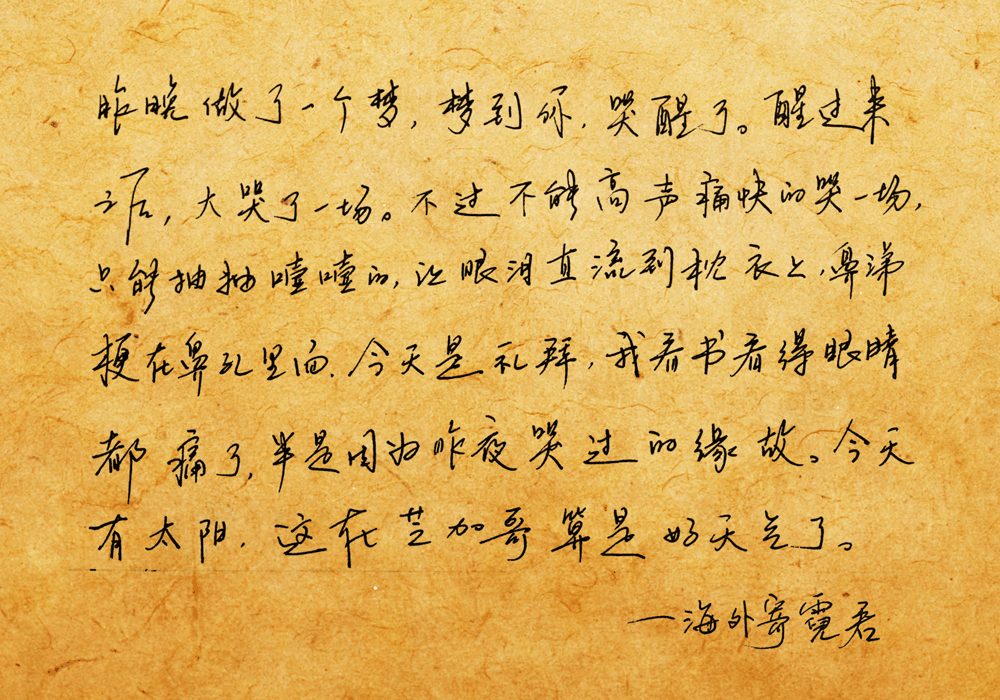 昨晚做了一个梦，梦到你，哭醒了。醒过来
之后，大哭了一场。不过不能高声痛快的哭一场，
只能抽抽噎噎的，让眼泪直流到枕衣上，鼻涕
梗在鼻孔里面．今天是礼拜，我看书看得眼睛
都痛了，半是因为昨夜哭过的缘故。今天
有太阳．这在芝加哥算是好天气了。
—海外寄霓君